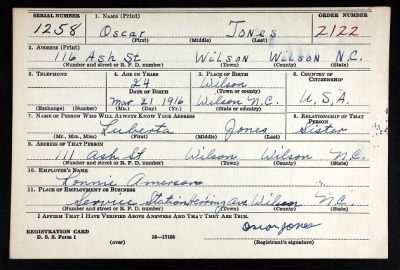 SERIAL NUMBER 1. NAME (Print) ORDER NUMBER
1258 Oscar Jones 2122
(First) (Middle) (Last)
2. ADDRESS (Print)
116 Ash St Wilson Wilson N.C.
(Number and street or R. F. D. number) (Town) (County) (State)
3. TELEPHONE 4. AGE IN YEARS 5. PLACE OF BIRTH 6. COUNTRY OF CITIZENSHIP
24 Wilson
DATE OF BIRTH (Town or county)
Mar. 21 1916 Wilson N.C. U.S.A.
(Exchange) (Number) (Mo.) (Day) (Yr.) (State or country)
7. NAME OF PERSON WHO WILL ALWAYS KNOW YOUR ADDRESS 8. RELATIONSHIP OF THAT PERSON
Luberta Jones Sister
(Mr., Mrs., Miss) (First) (Middle) (Last)
9. ADDRESS OF THAT PERSON
111 Ash St Wilson Wilson N.C.
(Number and street or R. F. D. number) (Town) (County) (State)
10. EMPLOYER'S NAME
Lonnie Amerson
11. PLACE OF EMPLOYMENT OR BUSINESS
Service Station Herring Ave Wilson N.C.
(Number and street or R. F. D. number) (Town) (County) (State)
I AFFIRM THAT I HAVE VERIFIED ABOVE ANSWERS AND THAT THEY ARE TRUE.
REGISTRATION CARD Oscar Jones
D. S. S. Form 1 (over) 16-17105 (Registrant's signature)